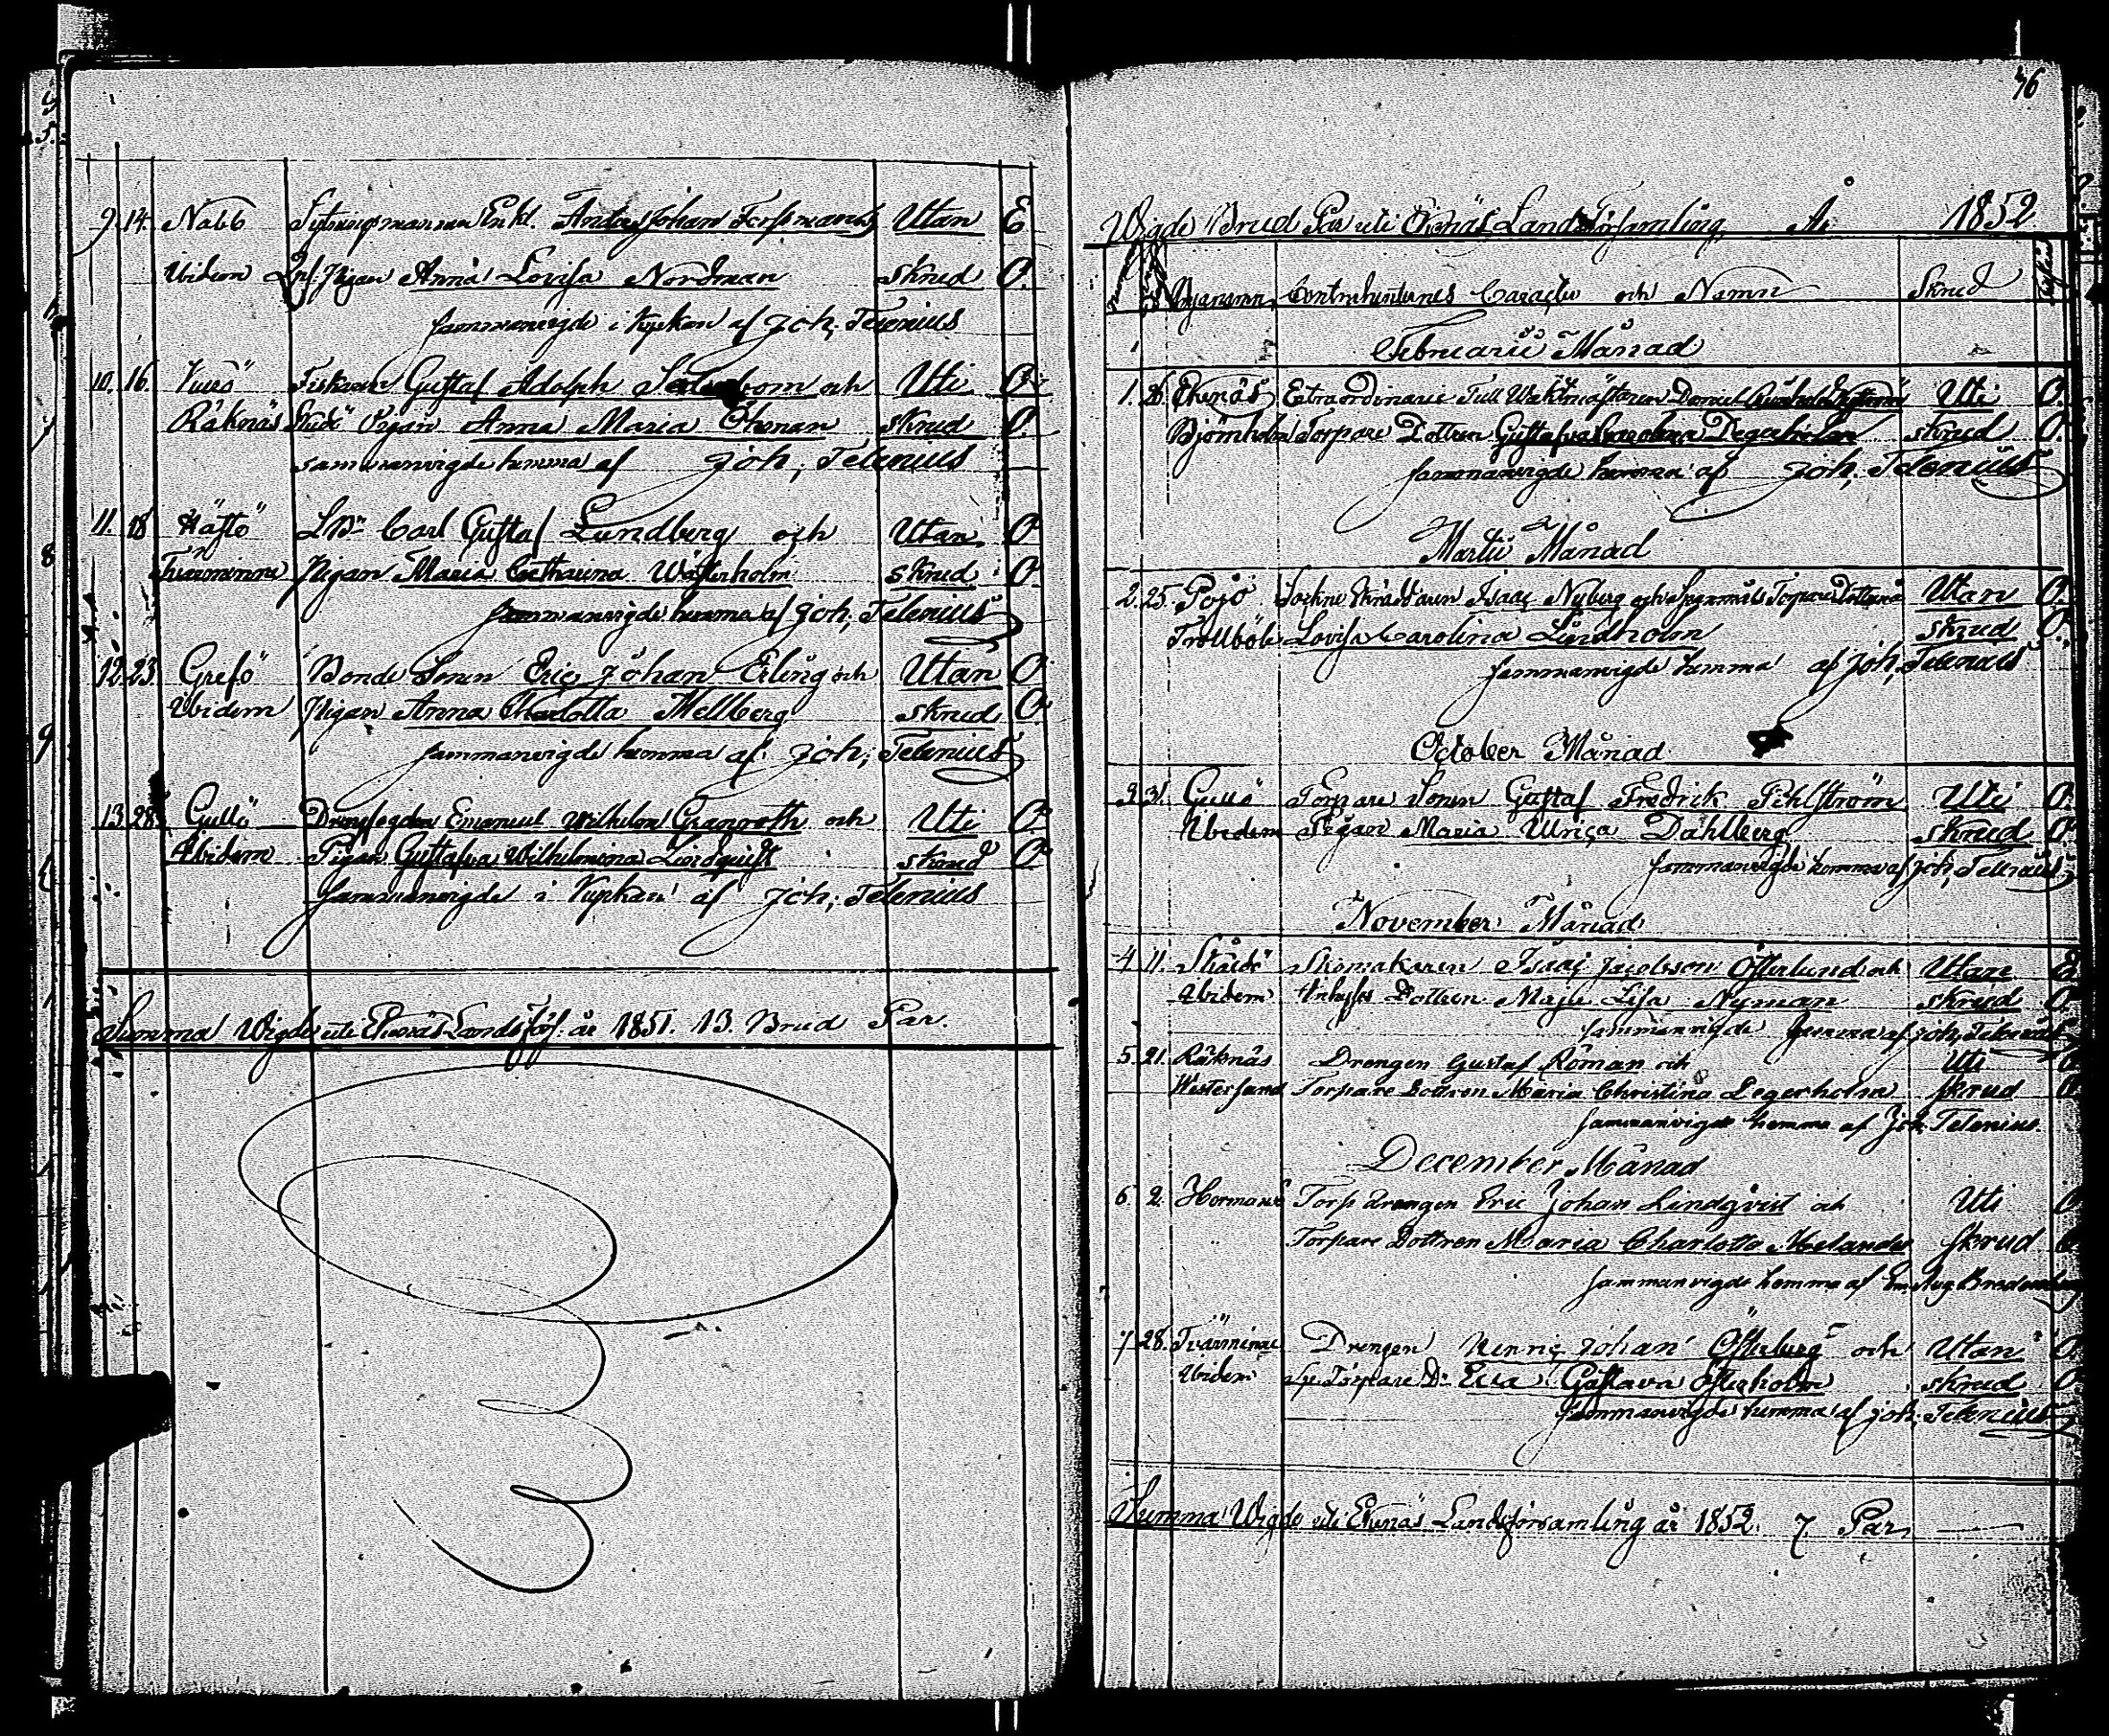 9. 14. Nabb Sytningsmannen Enkl. Anders Johan Forssman och Utan E
Ibidem Inh. Pigan Anna Lovisa Nordman skrud O.
sammanvigde i kyrkan af Joh; Telenius
10. 16. Fiskaren Gustaf Adolph och Uti O.
Råknäs Pigan Anna Maria Öhman skrud O.
sammanvigde hemma af Joh; Telenius
11. 18 Hästö Carl Gustaf Lundberg och Utan O
Tvärminne Pigan Maria Catharina Westerholm skrud O
sammanvigde hemma af Joh; Telenius
12. 23 Grefö Bonde Sonen Eric Johan Erling och Utan O.
Ibidem Pigan Anna Charlotta Mellberg skrud O.
sammanvigde hemma af Joh; Telenius
13. 28. Gullö Emanuel Wilhelm Granroth och Uti O.
Ibidem Pigan Gustafva Wilhelmina Lindqvist skrud O.
sammanvigde i Kyrkan af Joh; Telenius
Summa Wigde uti Ekenäs Landsförs. år 1851. 13. Brud Par.
46
Wigde Brud Par uti Ekenäs Landsförsamling, År 1852
Byarnamn, Contrahenternes Caracter och Namn Skrud
Februarii Månad
1. 26. Ekenäs Extraordinarie Tull Waktmästaren Daniel Uti O.
Björnholm Torpare Dottren Gustafva Carolina Degerholm skrud O.
sammanvigde hemma af Joh; Telenius
Martii Månad
2. 25. Pojo Sockne Skräddaren Isaac Nyberg och Torpare Dottren Utan O.
Trollböle Lovisa Carolina Lindholm skrud O.
sammanvigde hemma af Joh; Telenius
October Månad
3. 31. Gullö Torpare Sonen Gustaf Fredrik Pihlström Uti O.
Ibidem Pigan Maria Ulrica Dahlberg skrud O.
sammanvigde hemma af Joh; Telenius
November Månad
4 11. Skåldö Skomakaren Isaac Jacobsson Österlund och Utan
Ibidem Inhyses Dottren Maja Lisa Nyman skrud O.
sammanvigde hemma af Joh; Telenius
5. 21. Råknäs Drengen Gustaf Roman och Uti O
Westersund Torpare Dottren Maria Christina Segerholm skrud O
sammanvigde hemma af Joh. Telenius.
December Månad
6. 2. Hermansö Torp drengen Eric Johan Lindqvist och Uti O
Torpare Dottren Maria Charlotta Melander Skrud O
sammanvigde hemma af Em. Aug. Bredenberg
7 28. Tvärminne Drengen Henric Johan Österberg och Utan O
Ibidem Sp. Torpare D. Eva Gustava Österholm skrud O
sammanvigde hemma af Joh; Telenius
Summa Wigde uti Ekenäs Landsförsamling år 1852. 7. Par,